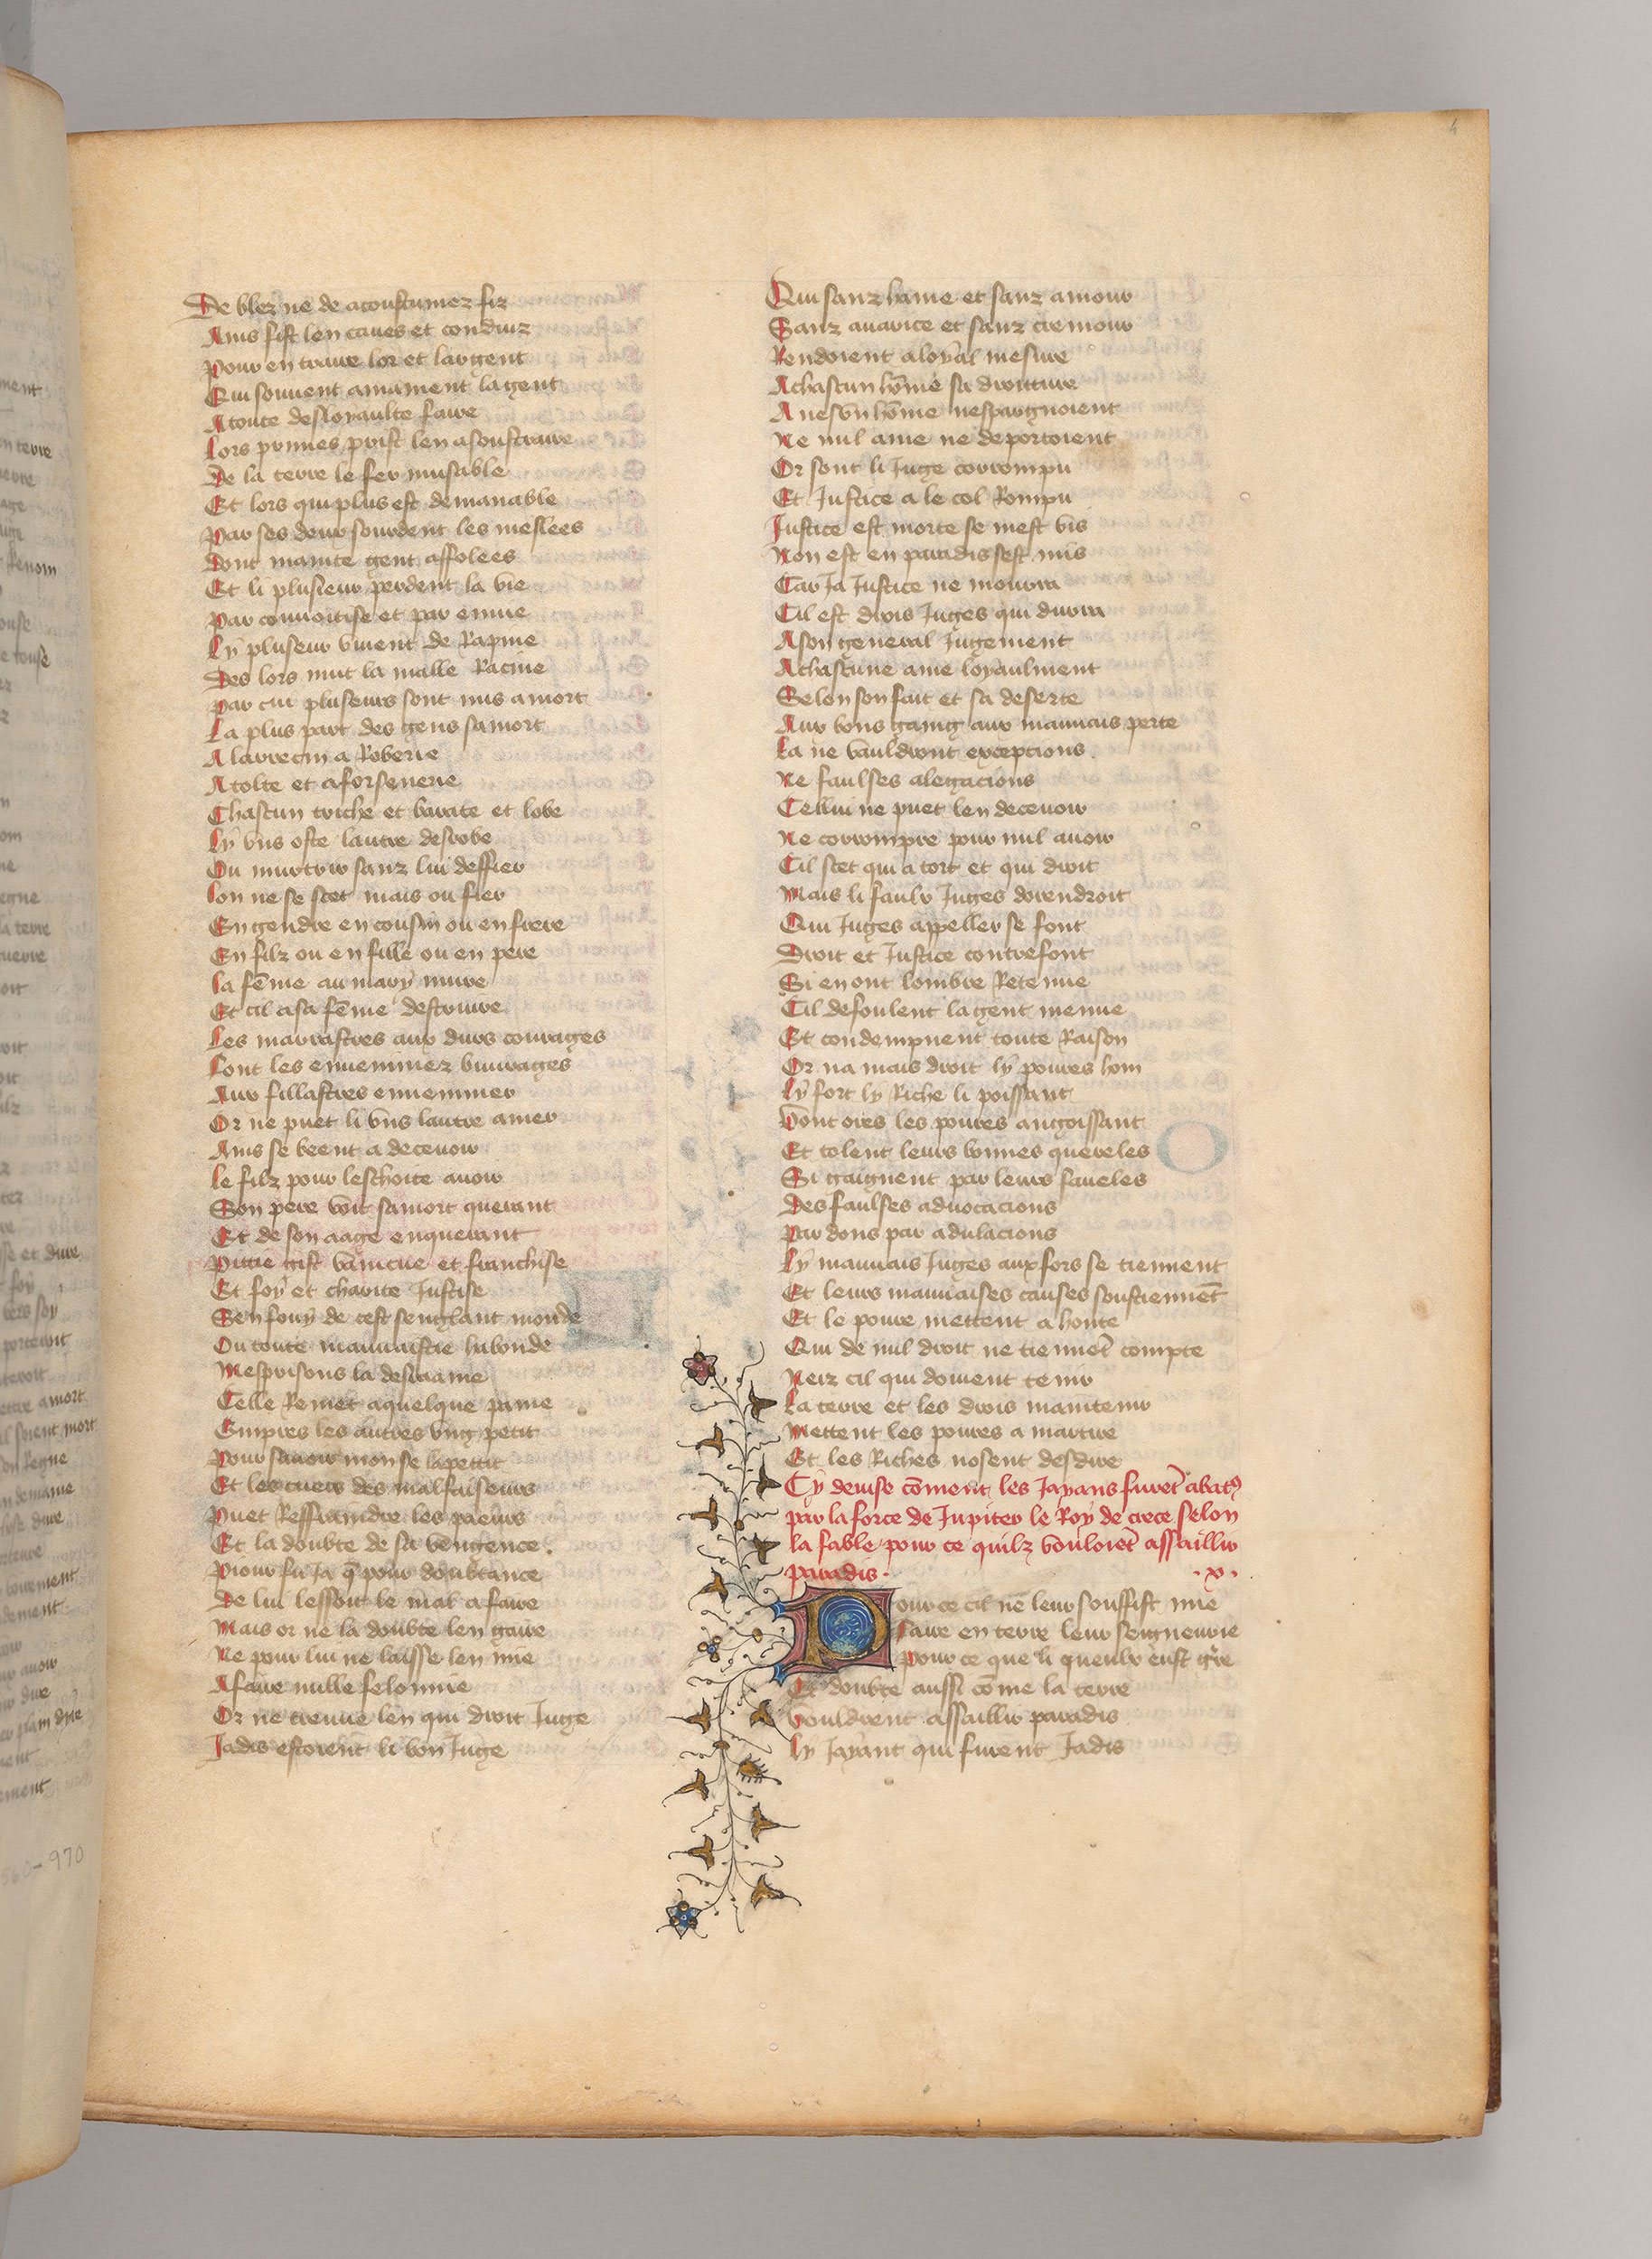 De blez ne de acoustumez fiz
Ains fist len caues et conduiz
Pour en traire lor et largent
Qui souuent amainent la gent
A toute desloyaulte faire
Lors primes prist len a soustraire
De la terre le fer nuisable
Et lors qui plus est demanable
Par ses deux sourdent les meslees
Dont mainte gent affolees
Et li plusieur perdent la vie
Par conuoitise et par enuie
Ly pluseur viuent de Rapine
Des lors mut la malle Racine
Par cui pluseurs sont mis a mort
La plus part des gens samort
A larrecin a Roberie
A tolte et a forsenerie
Chascun triche et barate et lobe
Ly vns oste lautre desrobe
Ou murtrir sanz lui deffier
Lon ne se scet mais ou fier
En gendre en cousin ou en frere
En filz ou en fille ou en pere
La fēme au mary nuire
Et cil a sa fēme destruire
Les marrastres aux durs courages
Font les enuenimez buurages
Aux fillastres enuenimer
Or ne puet li vns lautre amer
Ains se beent a deceuoir
Le filz pour leschoite auoir
Son pere voit sa mort querant
Et de son aage enquerant
Pitie gist vaincue et franchise
Et foy et charite Justise
Sen fouy de cest senglant monde
Ou toute mauuaistie habonde
Mesprisons la desraaine
Celle Remet a quelque paine
Empres les autres vng petit
Pour sauoir mon se lapetit
Et les cuers des malfaiseurs
Puet Reffraindre les paeurs
Et la doubte de sa vengence.
Piour fu Ja q̄ pour doubtance
De lui lessoit le mal a faire
Mais or ne la doubte len gaire
Ne pour lui ne laisse len mie
A faire nulle felonnie
Or ne treuue len qui droit Juge
Jadis estoient li bon Juge
Qui sanz haine et sanz amour
Sanz auarice et sanz cremour
Rendoient a loyal mesure
A chascun hōme sa droiture
A nesvn hōme nespargnoient
Ne nul ame ne deportoient
Or sont li Juge corrompu
Et Justice a le col Rompu
Justice est morte se mest vis
Non est en paradis sest mis
Car Ja Justice ne mourra
Cil est drois Juges qui durra
A son general Jugement
A chascune ame loyaulment
Selon son fait et sa deserte
Aux bons gaing aux mauuais perte
La ne vauldront excepcions.
Ne faulses alegacions
Cellui ne puet len deceuoir
Ne corrompre pour nul auoir
Cil scet qui a tort et qui droit
Mais li faulx Juges dorendroit
Qui Juges appeller se font
Droit et Justice contrefont
Si en ont lombre Retenue
Cil defoulent la gent menue
Et condempnent toute Raison
Or na mais droit ly poures hom
Ly fort ly Riche li poissant
Vont ores les poures angoissant
Et tolent leurs bonnes quereles
Si gaignent par leurs faueles
Des faulses aduocacions
Par dons par adulacions
Ly mauuais Juges aux fors se tiennent
Et leurs mauuaises causes soustiennēt
Et le poure mettent a honte
Qui de nul droit ne tiennēt compte
Neiz cil qui doiuent tenir
La terre et les drois maintenir
Mettent les poures a martire
Et les Riches nosent desdire
Cy deuise cōment les Jayans furēt abatꝰ
par la force de Jupiter le Roy de crece selon
la fable pour ce quilz vouloiēt assaillir
paradis. .x.
Pour ce cil ne leur souffist mie
Faire en terre leur seigneurie
Pour ce que li queulx eust gr̄e
Et doubte aussi cōme la terre
Vouldrent assaillir paradis
Ly Jayant qui furent Jadis